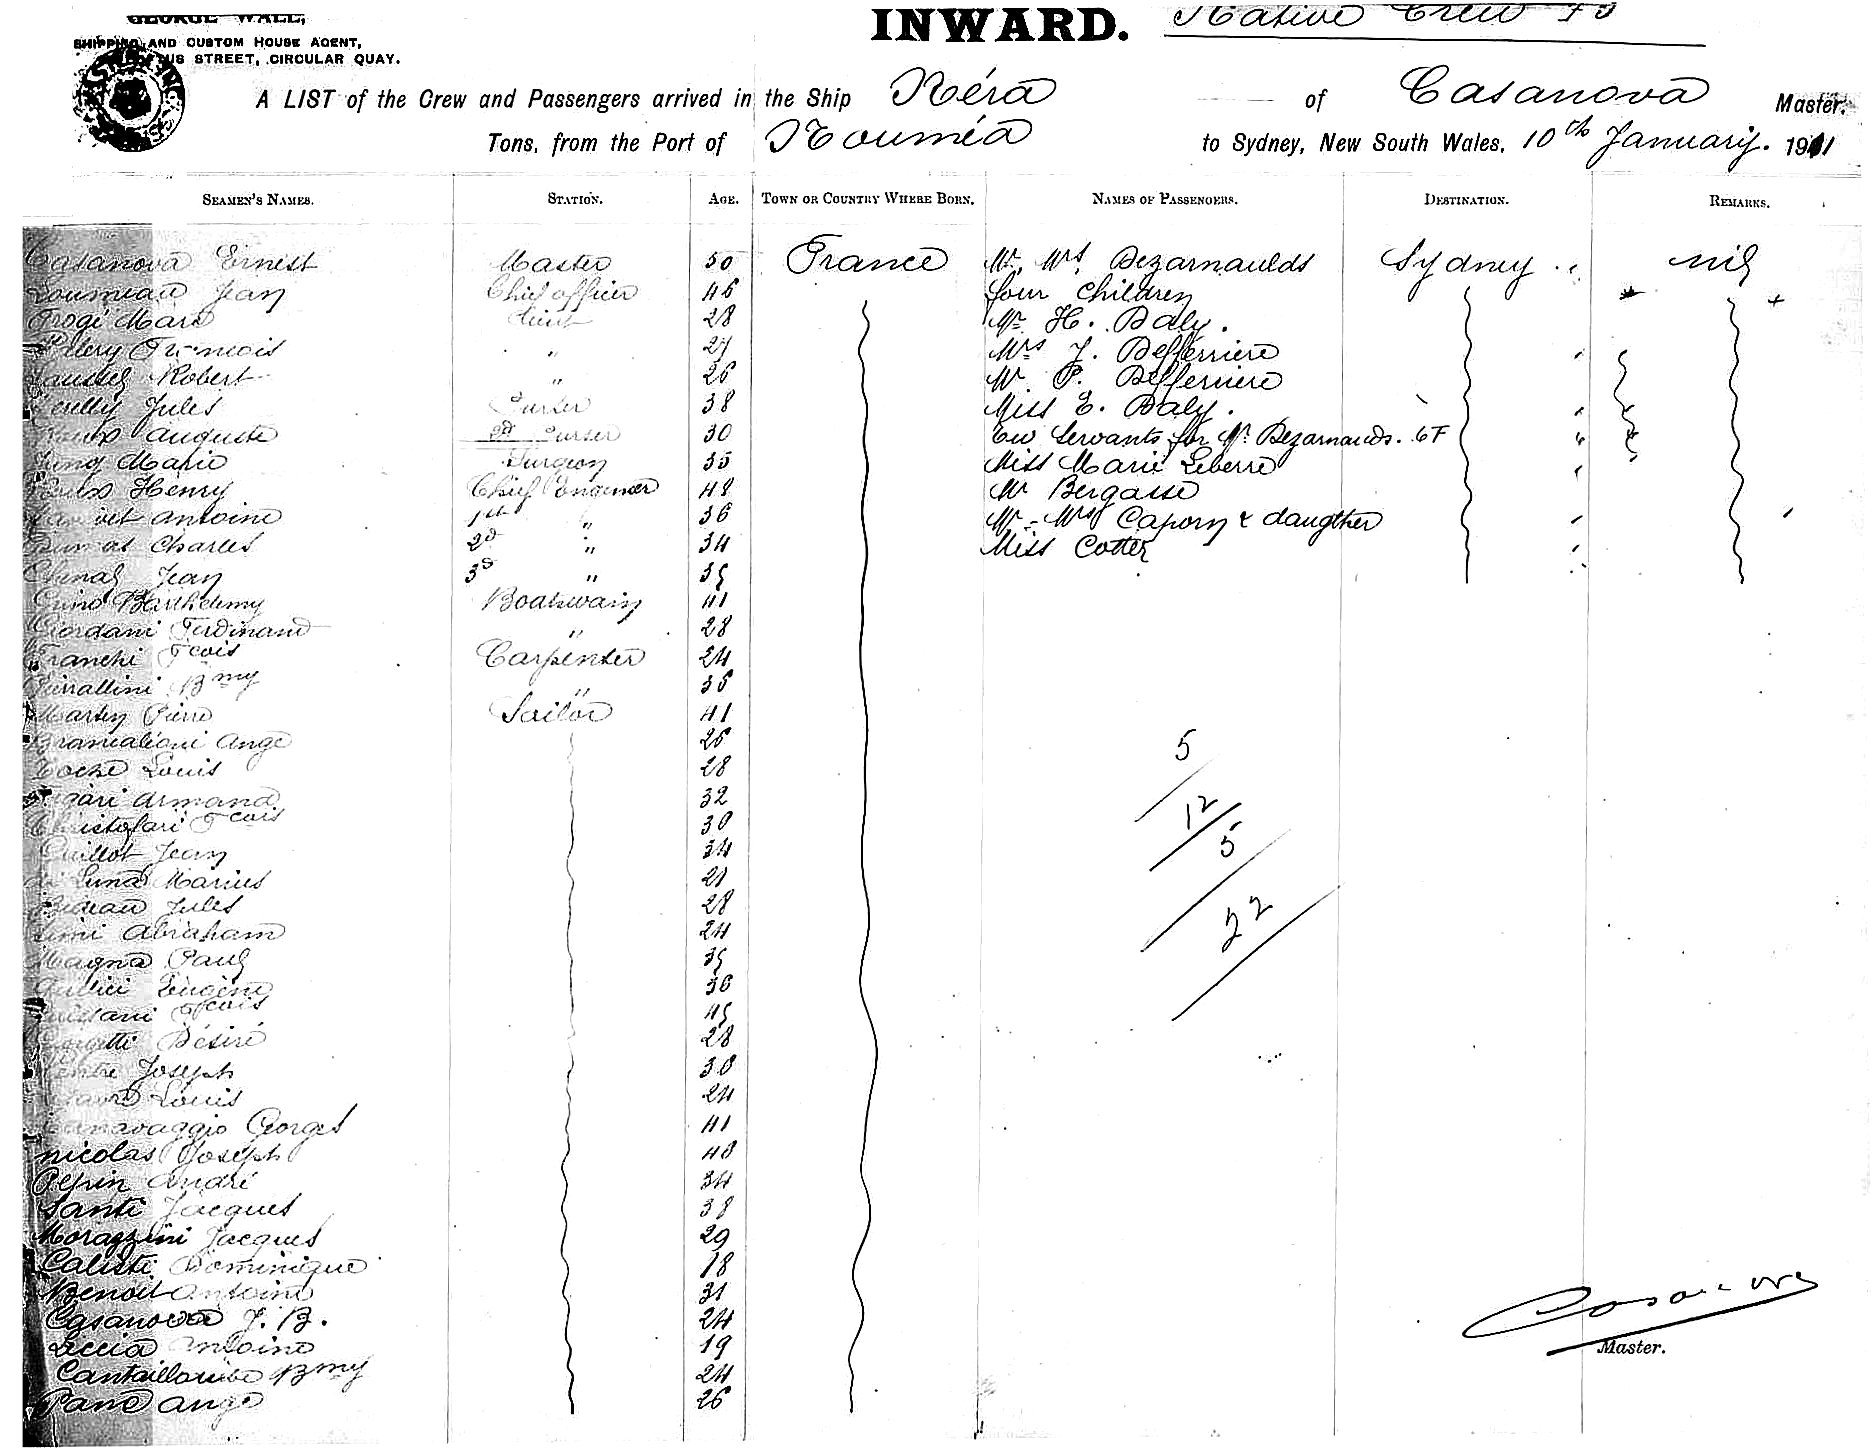 GEORGE WALL,
SHIPPING AND CUSTOM HOUSE AGENT,
STREET, CIRCULAR QUAY.
INWARD. Native Crew 43
A LIST of the Crew and Passengers arrived in the Ship Néra of Casanova Master.
Tons, from the Port of Nouméa to Sydney, New South Wales, 10th January. 1911
SEAMEN'S NAMES. STATION. AGE. TOWN OR COUNTRY WHERE BORN. NAMES OF PASSENGERS. DESTINATION. REMARKS.
Casanova Ernest Master 50 France Mr. Mrs. Bezarnaulds Sydney nil
Loumeau Jean Chief officer 46 four Children
Frogé Marc 28 Mr H. Daly.
François " 27 Mrs J. Defferriere
Robert " 26 Mr P. Defferriere
Jules Purser 38 Miss E. Daly.
Roux Auguste 2d Purser 30 two Servants for Mr Bezarnauds. 6F
Marie Surgeon 35 Miss Marie Leberre
Henry Chief Engineer 48 Mr Bergasse
Antoine 1st " 36 Mr - Mrs Caporn & daugther
Dumas Charles 2d " 34 Miss Cotter
Jean 3d " 35
Barthelemy Boatswain 41
Giordani Ferdinand " 28
Franchi Fcois Carpenter 24
Bmy " 35
Martin Pierre Sailor 41
Ange 26
Louis 28
5
Armand 32
12
Christofari Fcois 30
Guillot Jean 34
5
Luna Marius 21
Jules 28
22
Abraham 24
Magna Paul 35
Eugène 36
Fcois 45
Désiré 28
Joseph 30
Louis 24
Canavaggio Georges 41
Nicolas Joseph 40
Pepin André 34
Santi Jacques 38
Morazzini Jacques 29
Calisti Dominique 18
Benoit Antoine 31
Casanova J. B. 24
Casanova
Leccia Antoine 19
Master.
Cantailloube Bmy 24
Pane Ange 26